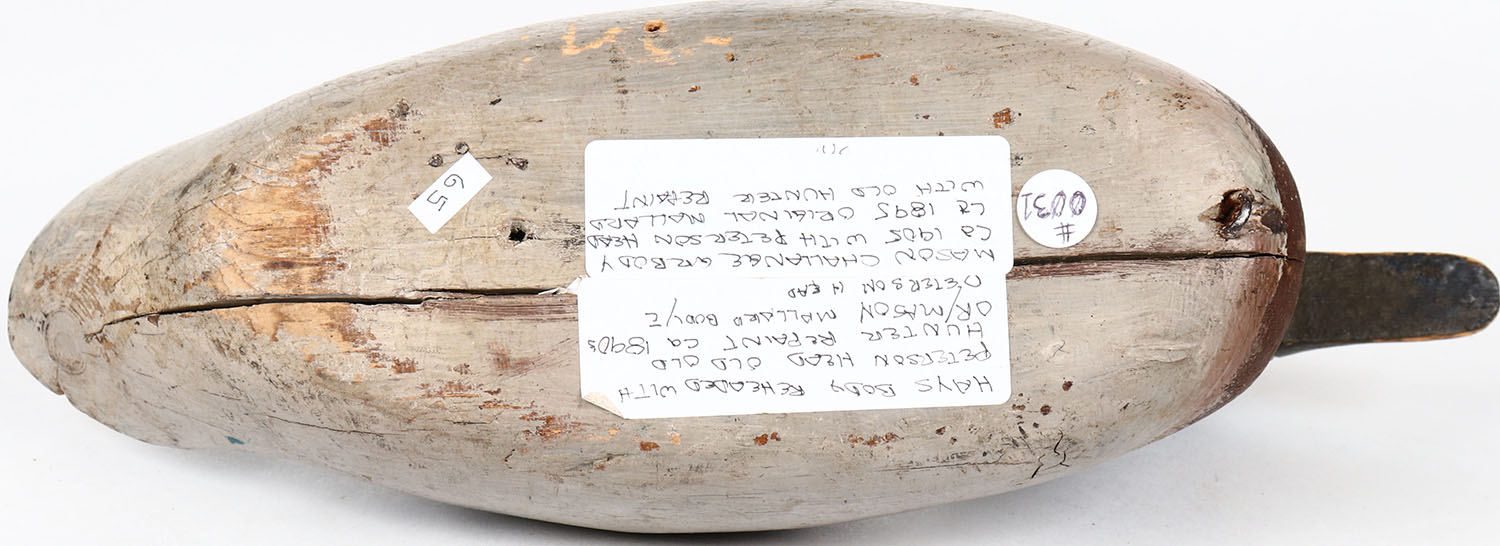 HAYS BODY REHEADED WITH
PETERSON HEAD OLD OLD
HUNTER REPAINT CA 1890s
OR/MASON MALLARD BODY/Z
PETERSON HEAD
MASON CHALLANGE GR BODY
CA 1905 WITH PETERSON HEAD
CA 1895 ORIGINAL MALLARD
WITH OLD HUNTER REPAINT
#
0031
65